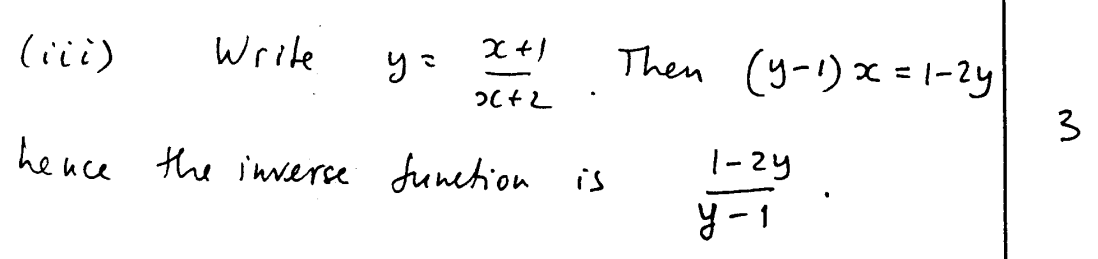 (iii) Write y = x+1/x+2 . Then (y-1)x = 1-2y
3
hence the inverse function is 1-2y/y-1 .